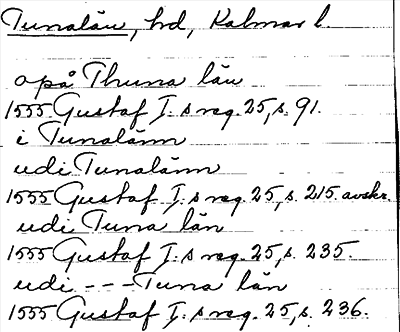 Tunalän, hd, Kalmar l.
opå Thuna län
1555 Gustaf I:s reg. 25, s. 91.
i Tunalänn
udi Tunalänn
1555 Gustaf I:s reg. 25, s. 215. avskr.
udi Tuna län
1555 Gustaf I:s reg. 25, s. 235.
udi --- Tuna län
1555 Gustaf I:s reg. 25, s. 236.